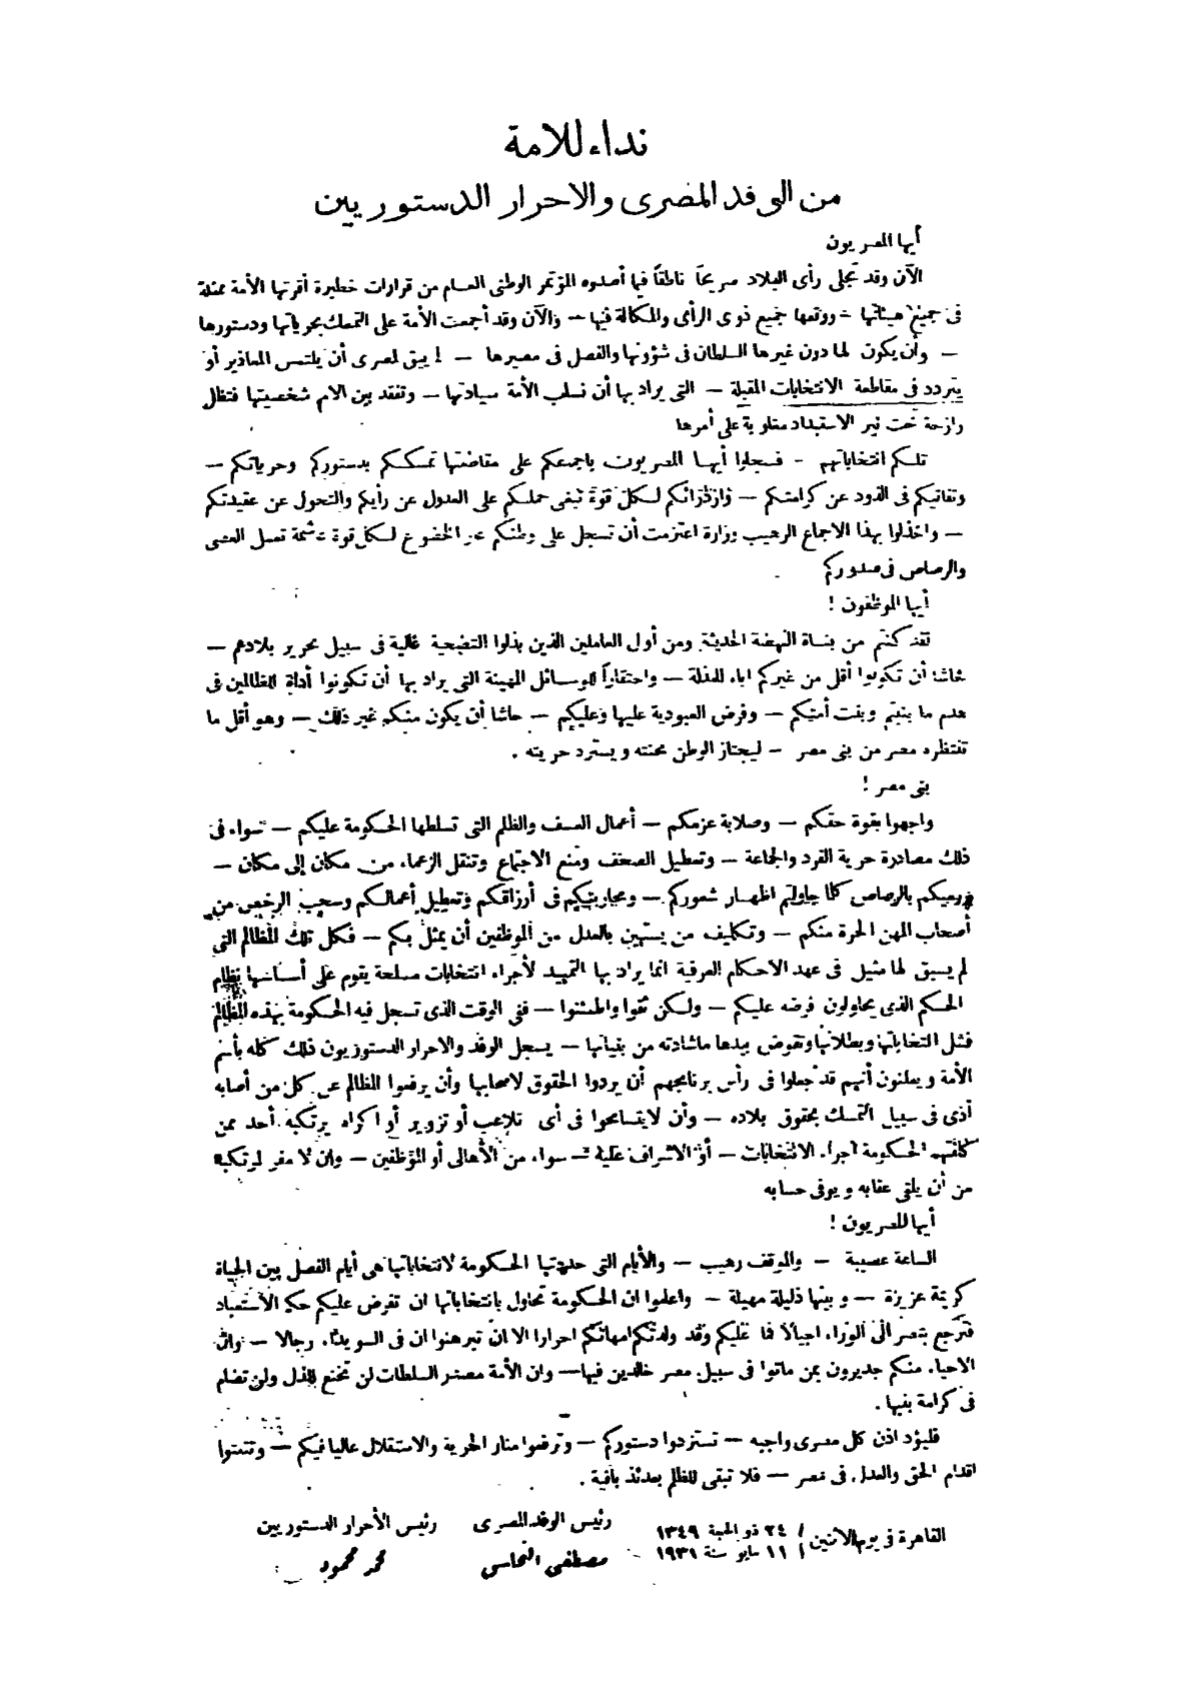 نداء للامة
من الوفد المصرى والاحرار الدستوريين
أيها المصريون
الآن وقد تجلى رأى البلاد صريحاً ناطقاً فيما أصدره المؤتمر الوطنى العام من قرارات خطيرة أقرتها الأمة ممثلة
فى جميع هيئاتها - ووقعها جميع ذوى الرأى والمكانة فيها — والآن وقد أجمعت الأمة على التمسك بحرياتها ودستورها
— وأن يكون لها دون غيرها السلطان فى شؤونها والفصل فى مصيرها — لم يبق لمصرى أن يلتمس المعاذير أو
يتردد فى مقاطعة الانتخابات المقبلة — التى يراد بها أن تسلب الأمة سيادتها — وتفقد بين الامم شخصيتها فتظل
رازحة تحت نير الاستبداد مغلوبة على أمرها
تلكم انتخاباتهم - فسجلوا أيها المصريون باجمعكم على مقاطعتها تمسككم بدستوركم وحرياتكم —
وتفانيكم فى الذود عن كرامتكم — وازدراءكم لكل قوة تبغى حملكم على العدول عن رأيكم والتحول عن عقيدتكم
— واخذلوا بهذا الاجماع الرهيب وزارة اعتزمت أن تسجل على وطنكم عار الخضوع لكل قوة غشمة تعمل العصى
والرصاص فى صدوركم
أيها الموظفون !
لقد كنتم من بناة النهضة الحديثة ومن أول العاملين الذين بذلوا التضحية غالية فى سبيل تحرير بلادهم —
حاشا أن تكونوا أقل من غيركم اباء للمذلة — واحتقاراً للوسائل المهينة التى يراد بها أن تكونوا أداة للظالمين فى
هدم ما بنيتم وبنت أمتكم — وفرض العبودية عليها وعليكم — حاشا أن يكون منكم غير ذلك — وهو أقل ما
تنتظره مصر من بنى مصر — ليجتاز الوطن محنته ويسترد حريته .
بنى مصر !
واجهوا بقوة حقكم — وصلابة عزمكم — أعمال العسف والظلم التى تسلطها الحكومة عليكم — سواء فى
ذلك مصادرة حرية الفرد والجماعة — وتعطيل الصحف ومنع الاجتماع وتنقل الزعماء من مكان إلى مكان —
ورميكم بالرصاص كلما حاولتم اظهار شعوركم — ومحاربتكم فى أرزاقكم وتعطيل أعمالكم وسحب الرخص من
أصحاب المهن الحرة منكم — وتكليف من يستهين بالعدل من الموظفين أن يمثل بكم — فكل تلك المظالم التى
لم يسبق لها مثيل فى عهد الاحكام العرفية انما يراد بها التمهيد لأجراء انتخابات مسلحة يقوم على أساسها نظام
الحكم الذى يحاولون فرضه عليكم — ولكن ثقوا واطمئنوا — ففى الوقت الذى تسجل فيه الحكومة بهذه المظالم
فشل انتخاباتها وبطلانها وتقوض بيدها ماشادته من بنيانها — يسجل الوفد والاحرار الدستوريون ذلك كله بأسم
الأمة ويعلنون أنهم قد جعلوا فى رأس برنامجهم أن يردوا الحقوق لاصحابها وأن يرفعوا المظالم عن كل من أصابه
أذى فى سبيل التمسك بحقوق بلاده — وأن لايتسامحوا فى أى تلاعب أو تزوير أو اكراه يرتكبه أحد ممن
كلفتهم الحكومة اجراء الانتخابات — أو الاشراف عليها — سواء من الأهالى أو الموظفين — وان لا مفر لمرتكبه
من أن يلقى عقابه ويوفى حسابه
أيها المصريون !
الساعة عصيبة — والموقف رهيب — والأيام التى حددتها الحكومة لانتخاباتها هى أيام الفصل بين الحياة
كريمة عزيزة — وبينها ذليلة مهيلة — واعلموا ان الحكومة تحاول بانتخاباتها ان تفرض عليكم حكم الاستعباد
فترجع بمصر الى الوراء اجيالاً فما عليكم وقد ولدتكم امهاتكم احرارا الا ان تبرهنوا ان فى السويداء رجالا — وان
الاحياء منكم جديرون بمن ماتوا فى سبيل مصر خالدين فيها — وان الأمة مصدر السلطات لن تخنع للذل ولن تضام
فى كرامة بنيها .
فليؤد اذن كل مصرى واجبه — تستردوا دستوركم — وترفعوا منار الحرية والاستقلال عاليا فيكم — وتثبتوا
اقدام الحق والعدل فى مصر — فلا تبقى للظلم بعدئذ باقية .
القاهرة فى يوم الاثنين / ٢٤ ذو الحجة ١٣٤٩ / ١١ مايو سنة ١٩٣١
رئيس الوفد المصرى
مصطفى النحاس
رئيس الأحرار الدستوريين
محمد محمود